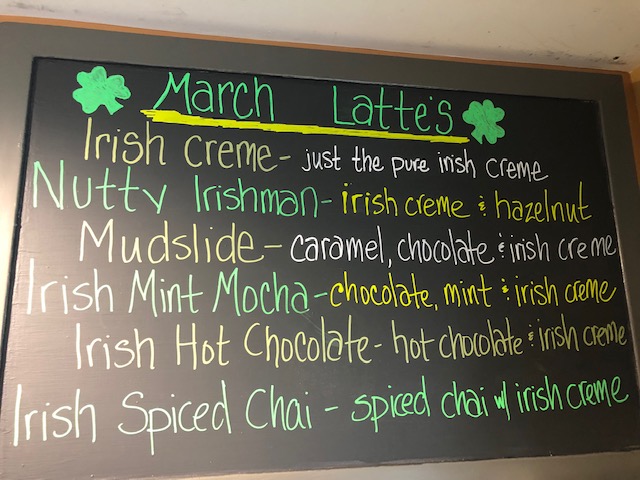 March Latte's
Irish Creme - just the pure irish creme
Nutty Irishman - irish creme & hazelnut
Mudslide - caramel, chocolate & irish creme
Irish Mint Mocha - chocolate, mint & irish creme
Irish Hot Chocolate - hot chocolate & irish creme
Irish Spiced Chai - spiced chai w/ irish creme